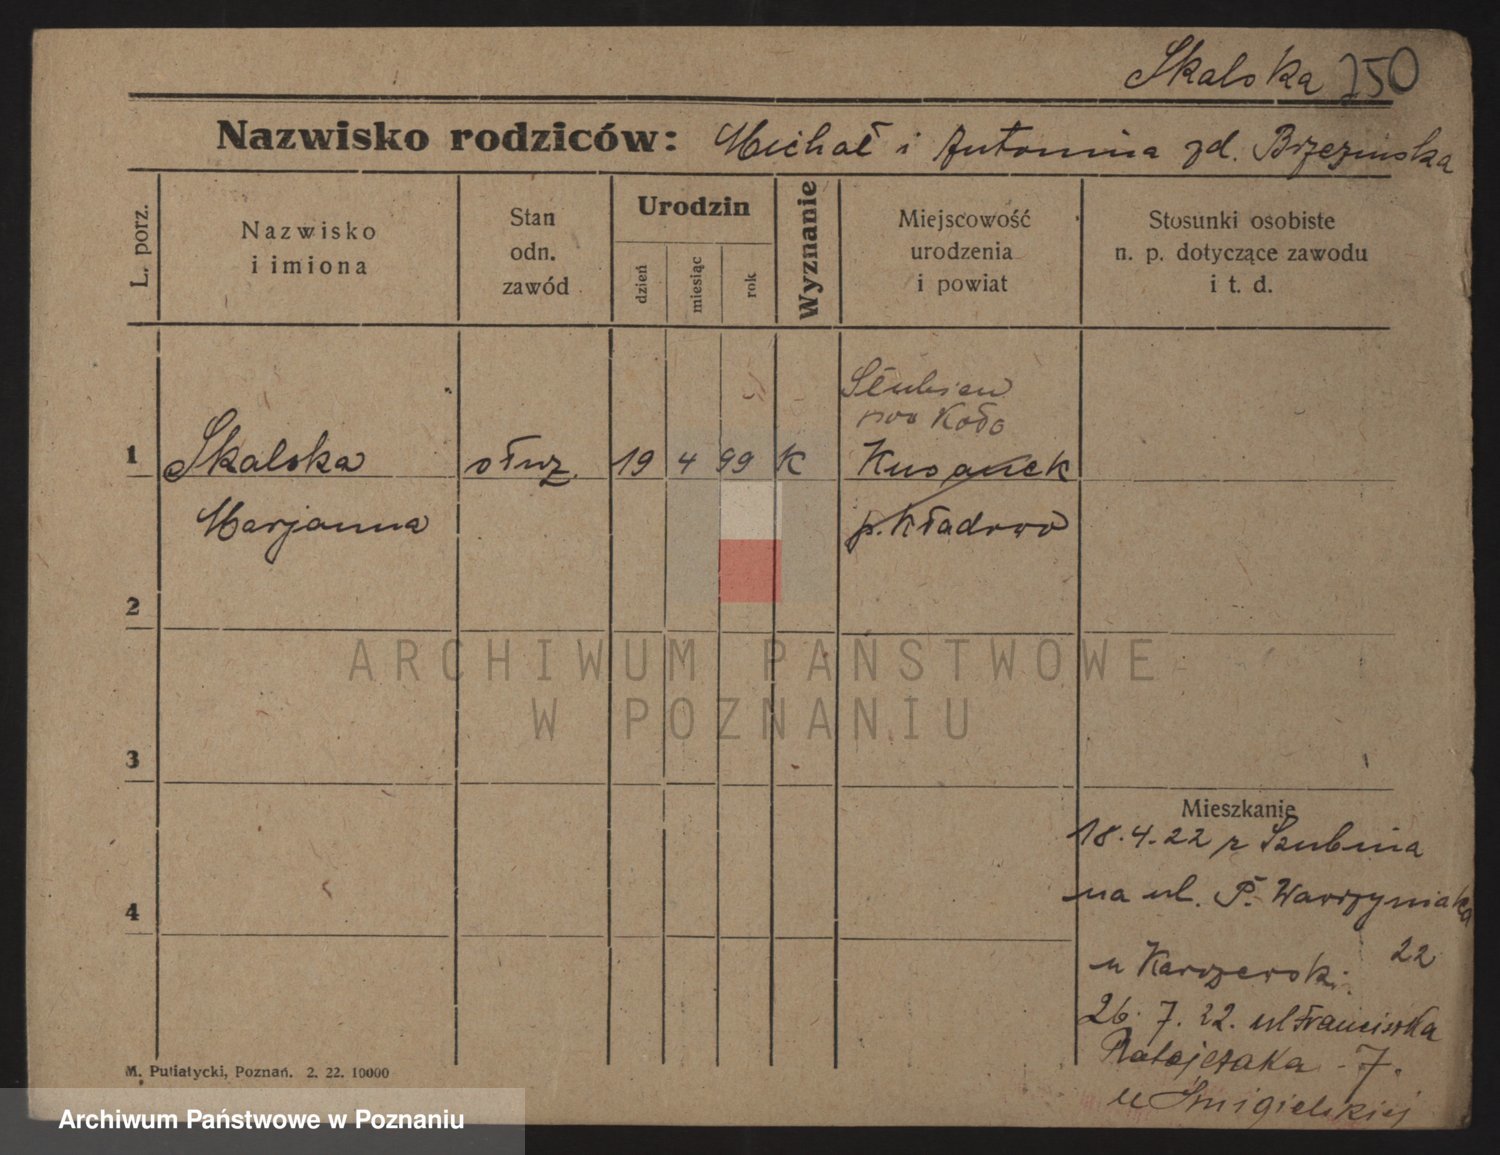 Skalska 750
Nazwisko rodziców: Michał i Antonina zd. Brzezinska
L. porz.
Nazwisko
i imiona
Stan
odn.
zawód
Urodzin
dzień
miesiąc
rok
Wyznanie
Miejscowość
urodzenia
i powiat
Stosunki osobiste
n. p. dotyczące zawodu
i t. d.
Koło
1 Skalska służ. 19 4 99 K
Marjanna p. Kładowo
2
3
4
Mieszkanie
18.4.22 z Szubina
na ul. P. Wawrzyniaka
22
u
26. 7. 22. ul Franciszka
Ratajczaka - 7.
u Śmigielskiej
M. Putiatycki, Poznań. 2. 22. 10000
ARCHIWUM PAŃSTWOWE
W POZNANIU
Archiwum Państwowe w Poznaniu